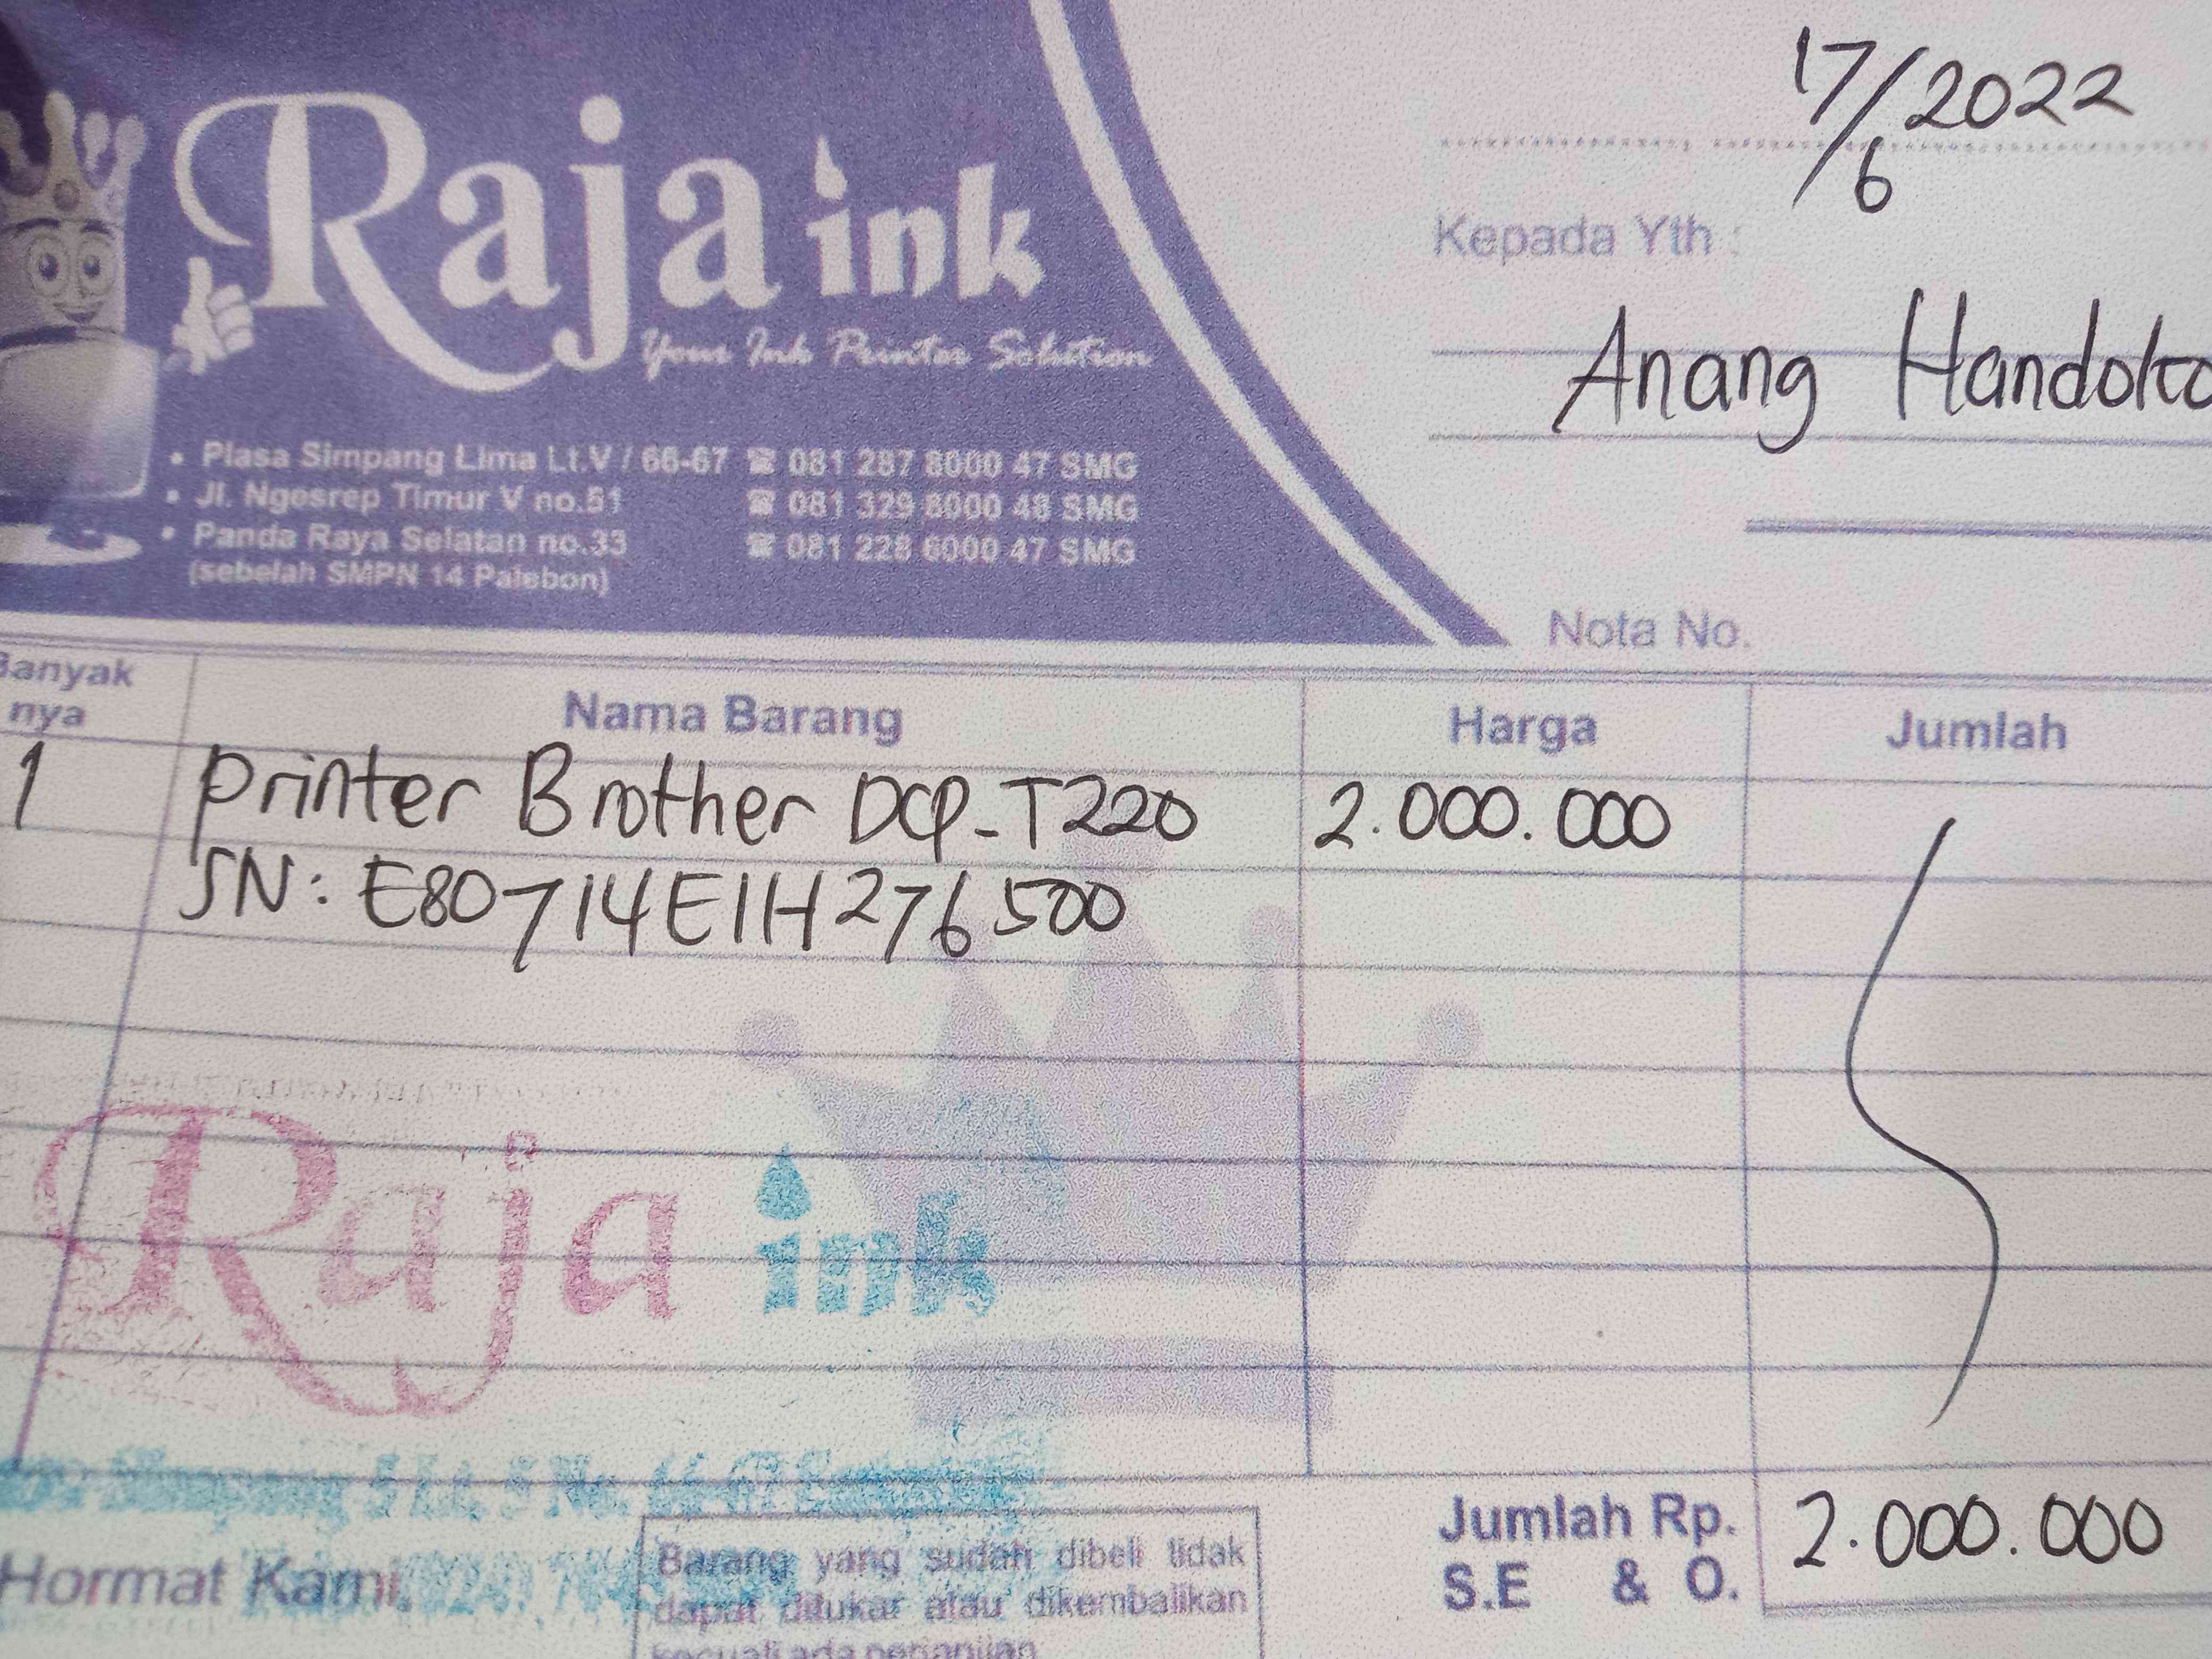 Raja ink
Your Ink Printer Solution
• Plasa Simpang Lima Lt.V / 66-67 ☎ 081 287 8000 47 SMG
• Jl. Ngesrep Timur V no.51 ☎ 081 329 8000 48 SMG
• Panda Raya Selatan no.33 ☎ 081 228 6000 47 SMG
(sebelah SMPN 14 Palebon)
17/6/2022
Kepada Yth :
Anang Handoko
Nota No.
Banyak nya Nama Barang Harga Jumlah
1 Printer Brother DCP-T220 2.000.000
SN: E80714E1H276500
Raja ink
Simpang 5 Lt. 5 No.
Jumlah Rp. 2.000.000
S.E & O.
Hormat Kami,
Barang yang sudah dibeli tidak
dapat ditukar atau dikembalikan
kecuali ada perjanjian